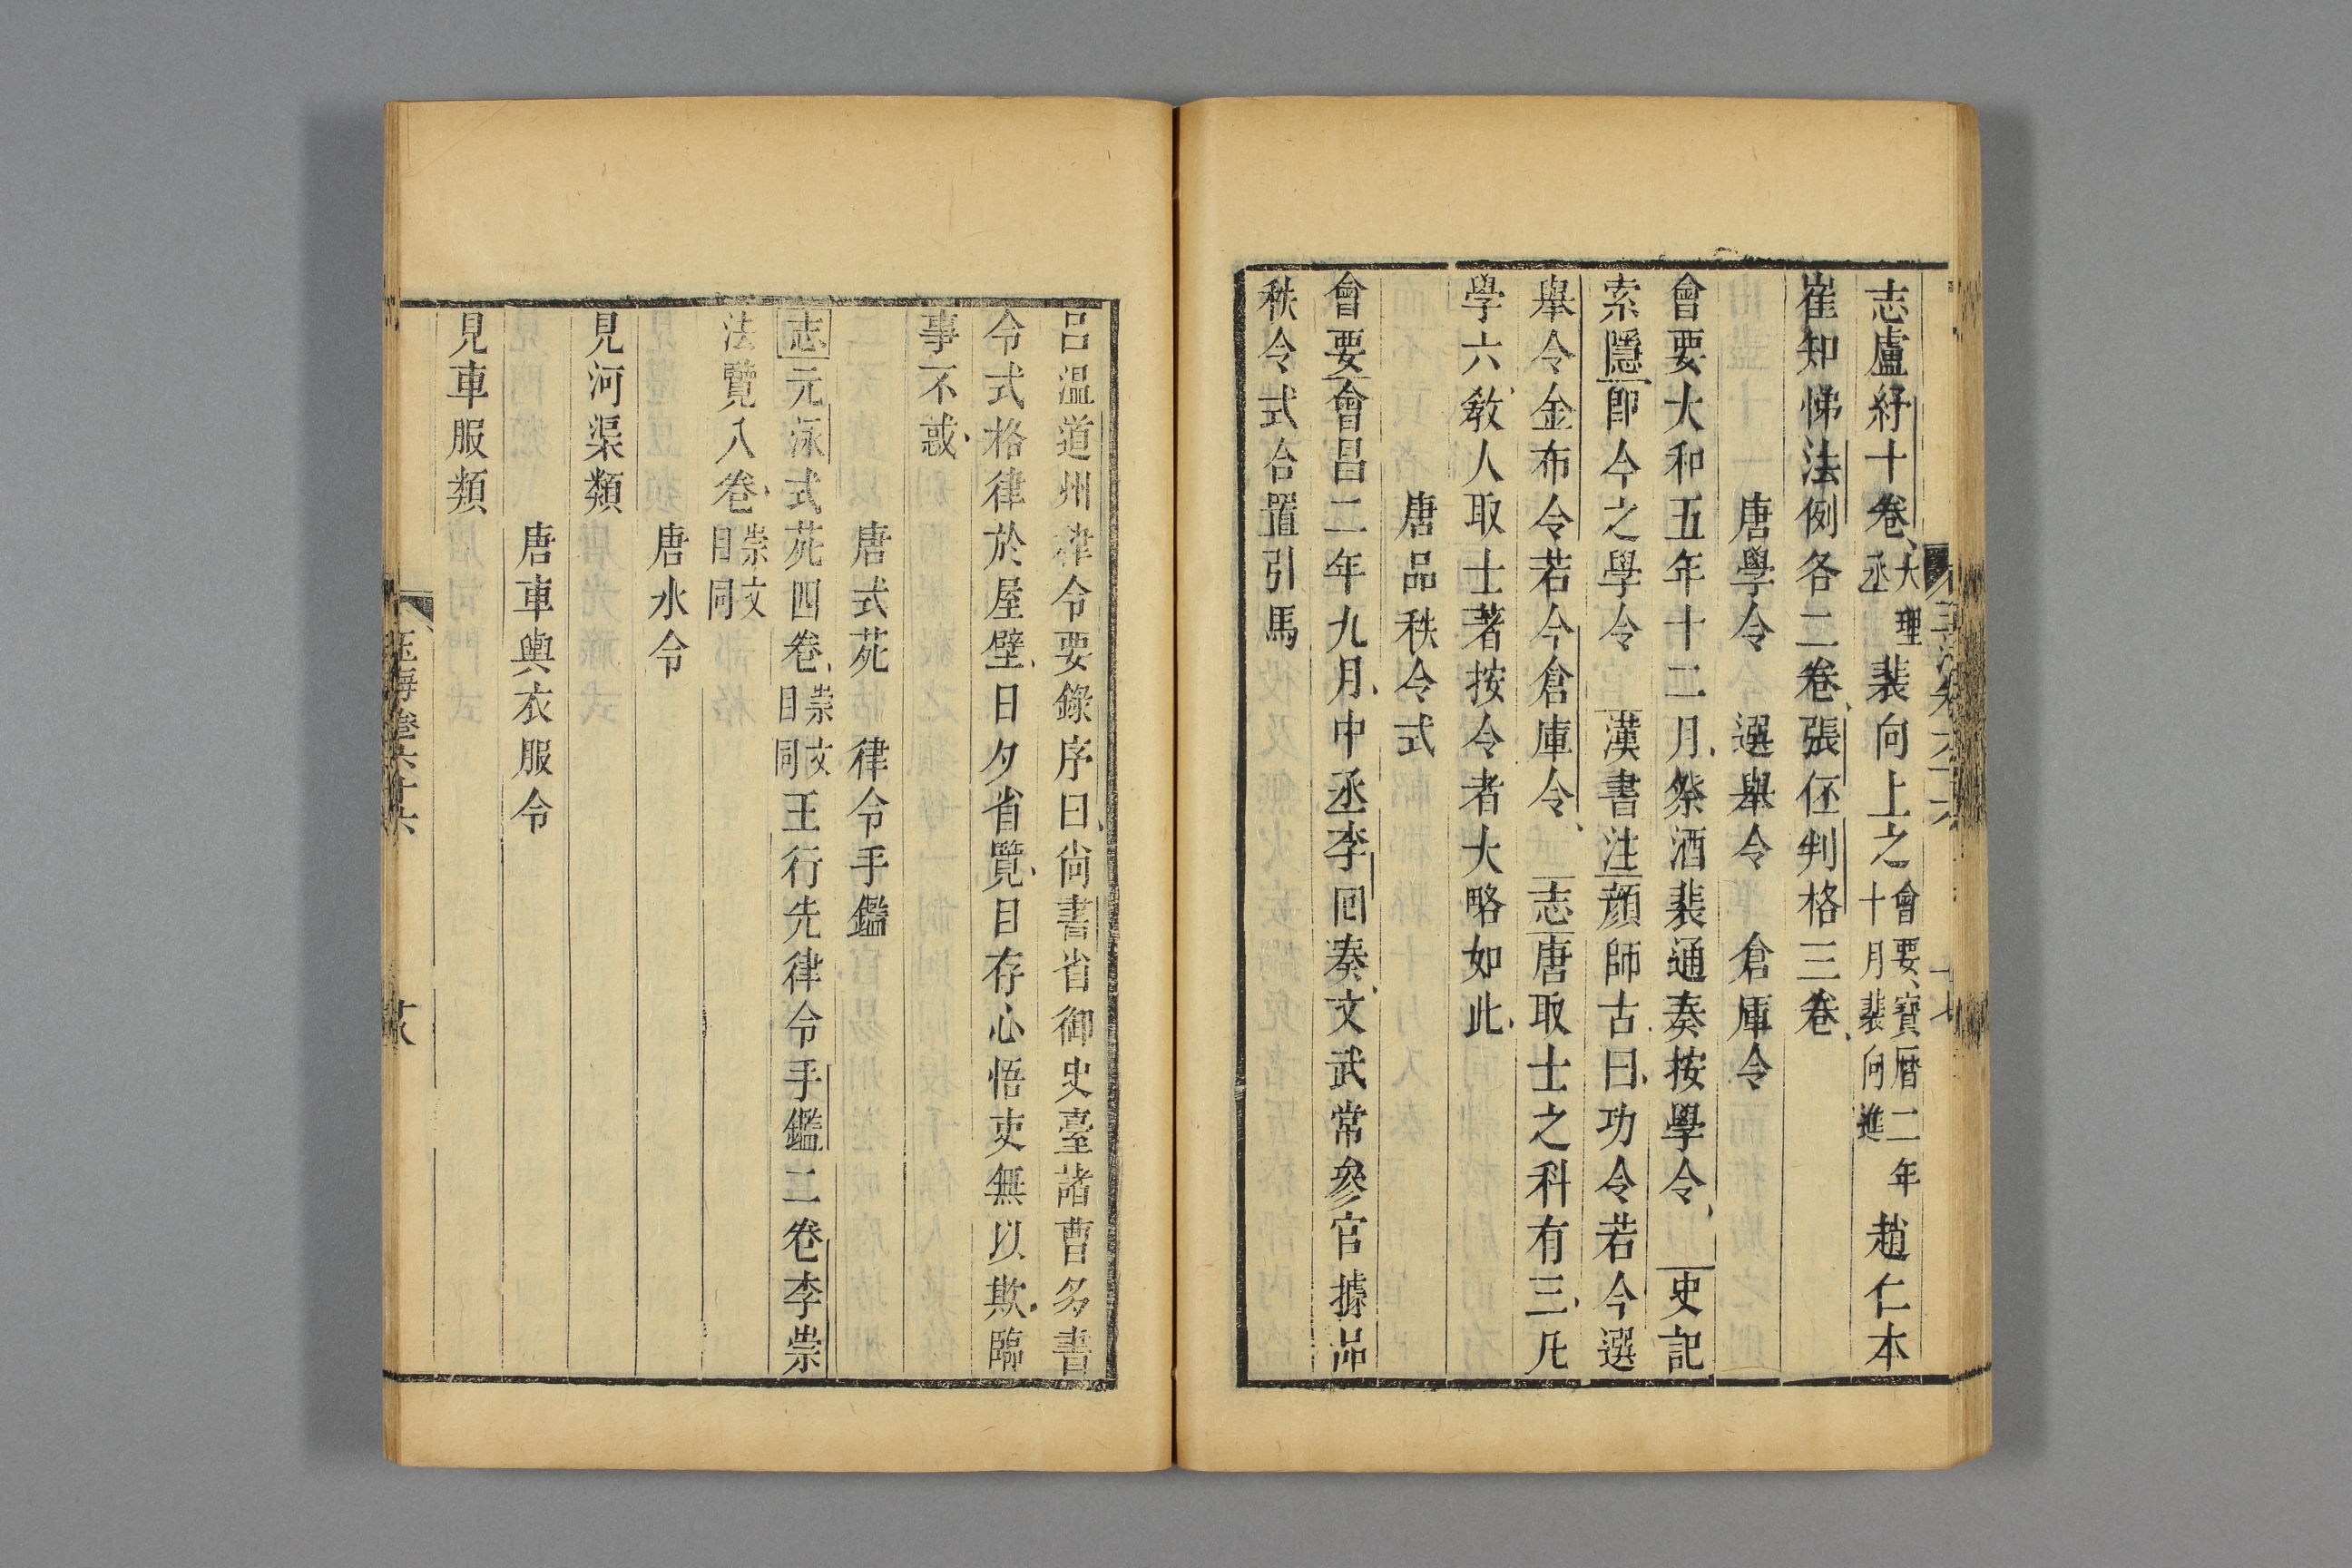 志盧紓十卷大理丞裴向上之會要寶曆二年十月裴向進趙仁本
崔知悌法例各二卷張伾判格三卷
唐學令 選舉令 倉庫令
會要大和五年十二月祭酒裴通奏按學令 史記
索隱卽今之學令 漢書注顏師古曰功令若今選
舉令金布令若今倉庫令 志唐取士之科有三凡
學六敎人取士著按令者大略如此
唐品秩令式
會要會昌二年九月中丞李回奏文武常參官據品
秩令式合置引馬
呂温道州律令要錄序曰尚書省御史臺諸曹多書
令式格律於屋壁日夕省覽目存心悟吏無以欺臨
事不惑
唐式苑 律令手鑑
志元泳式苑四卷崇文目同王行先律令手鑑二卷李崇
法覽八卷崇文目同
唐水令
見河渠類
唐車輿衣服令
見車服類
玉海卷六十六